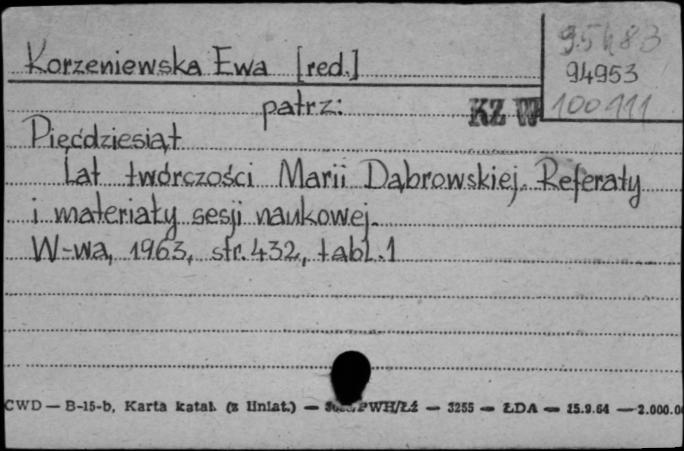 Korzeniewska Ewa [red.]
95483
94953
100111
patrz:
KZ W
Pięćdziesiąt
Lat twórczości Marii Dąbrowskiej. Referaty
i materiały sesji naukowej.
W-wa, 1963, str. 432, tabl. 1
CWD — B-15-b, Karta katal. (z liniat.) — PWH/Łź — 3255 — ŁDA — 15.9.64 — 2.000.0